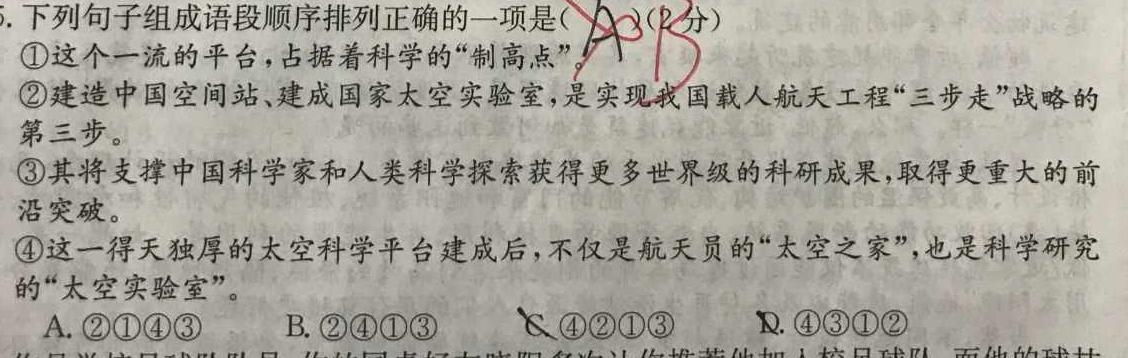 5. 下列句子组成语段顺序排列正确的一项是( A )(2分) B
①这个一流的平台,占据着科学的“制高点”。
②建造中国空间站、建成国家太空实验室,是实现我国载人航天工程“三步走”战略的
第三步。
③其将支撑中国科学家和人类科学探索获得更多世界级的科研成果,取得更重大的前
沿突破。
④这一得天独厚的太空科学平台建成后,不仅是航天员的“太空之家”,也是科学研究
的“太空实验室”。
A. ②①④③ B. ②④①③ C. ④②①③ D. ④③①②